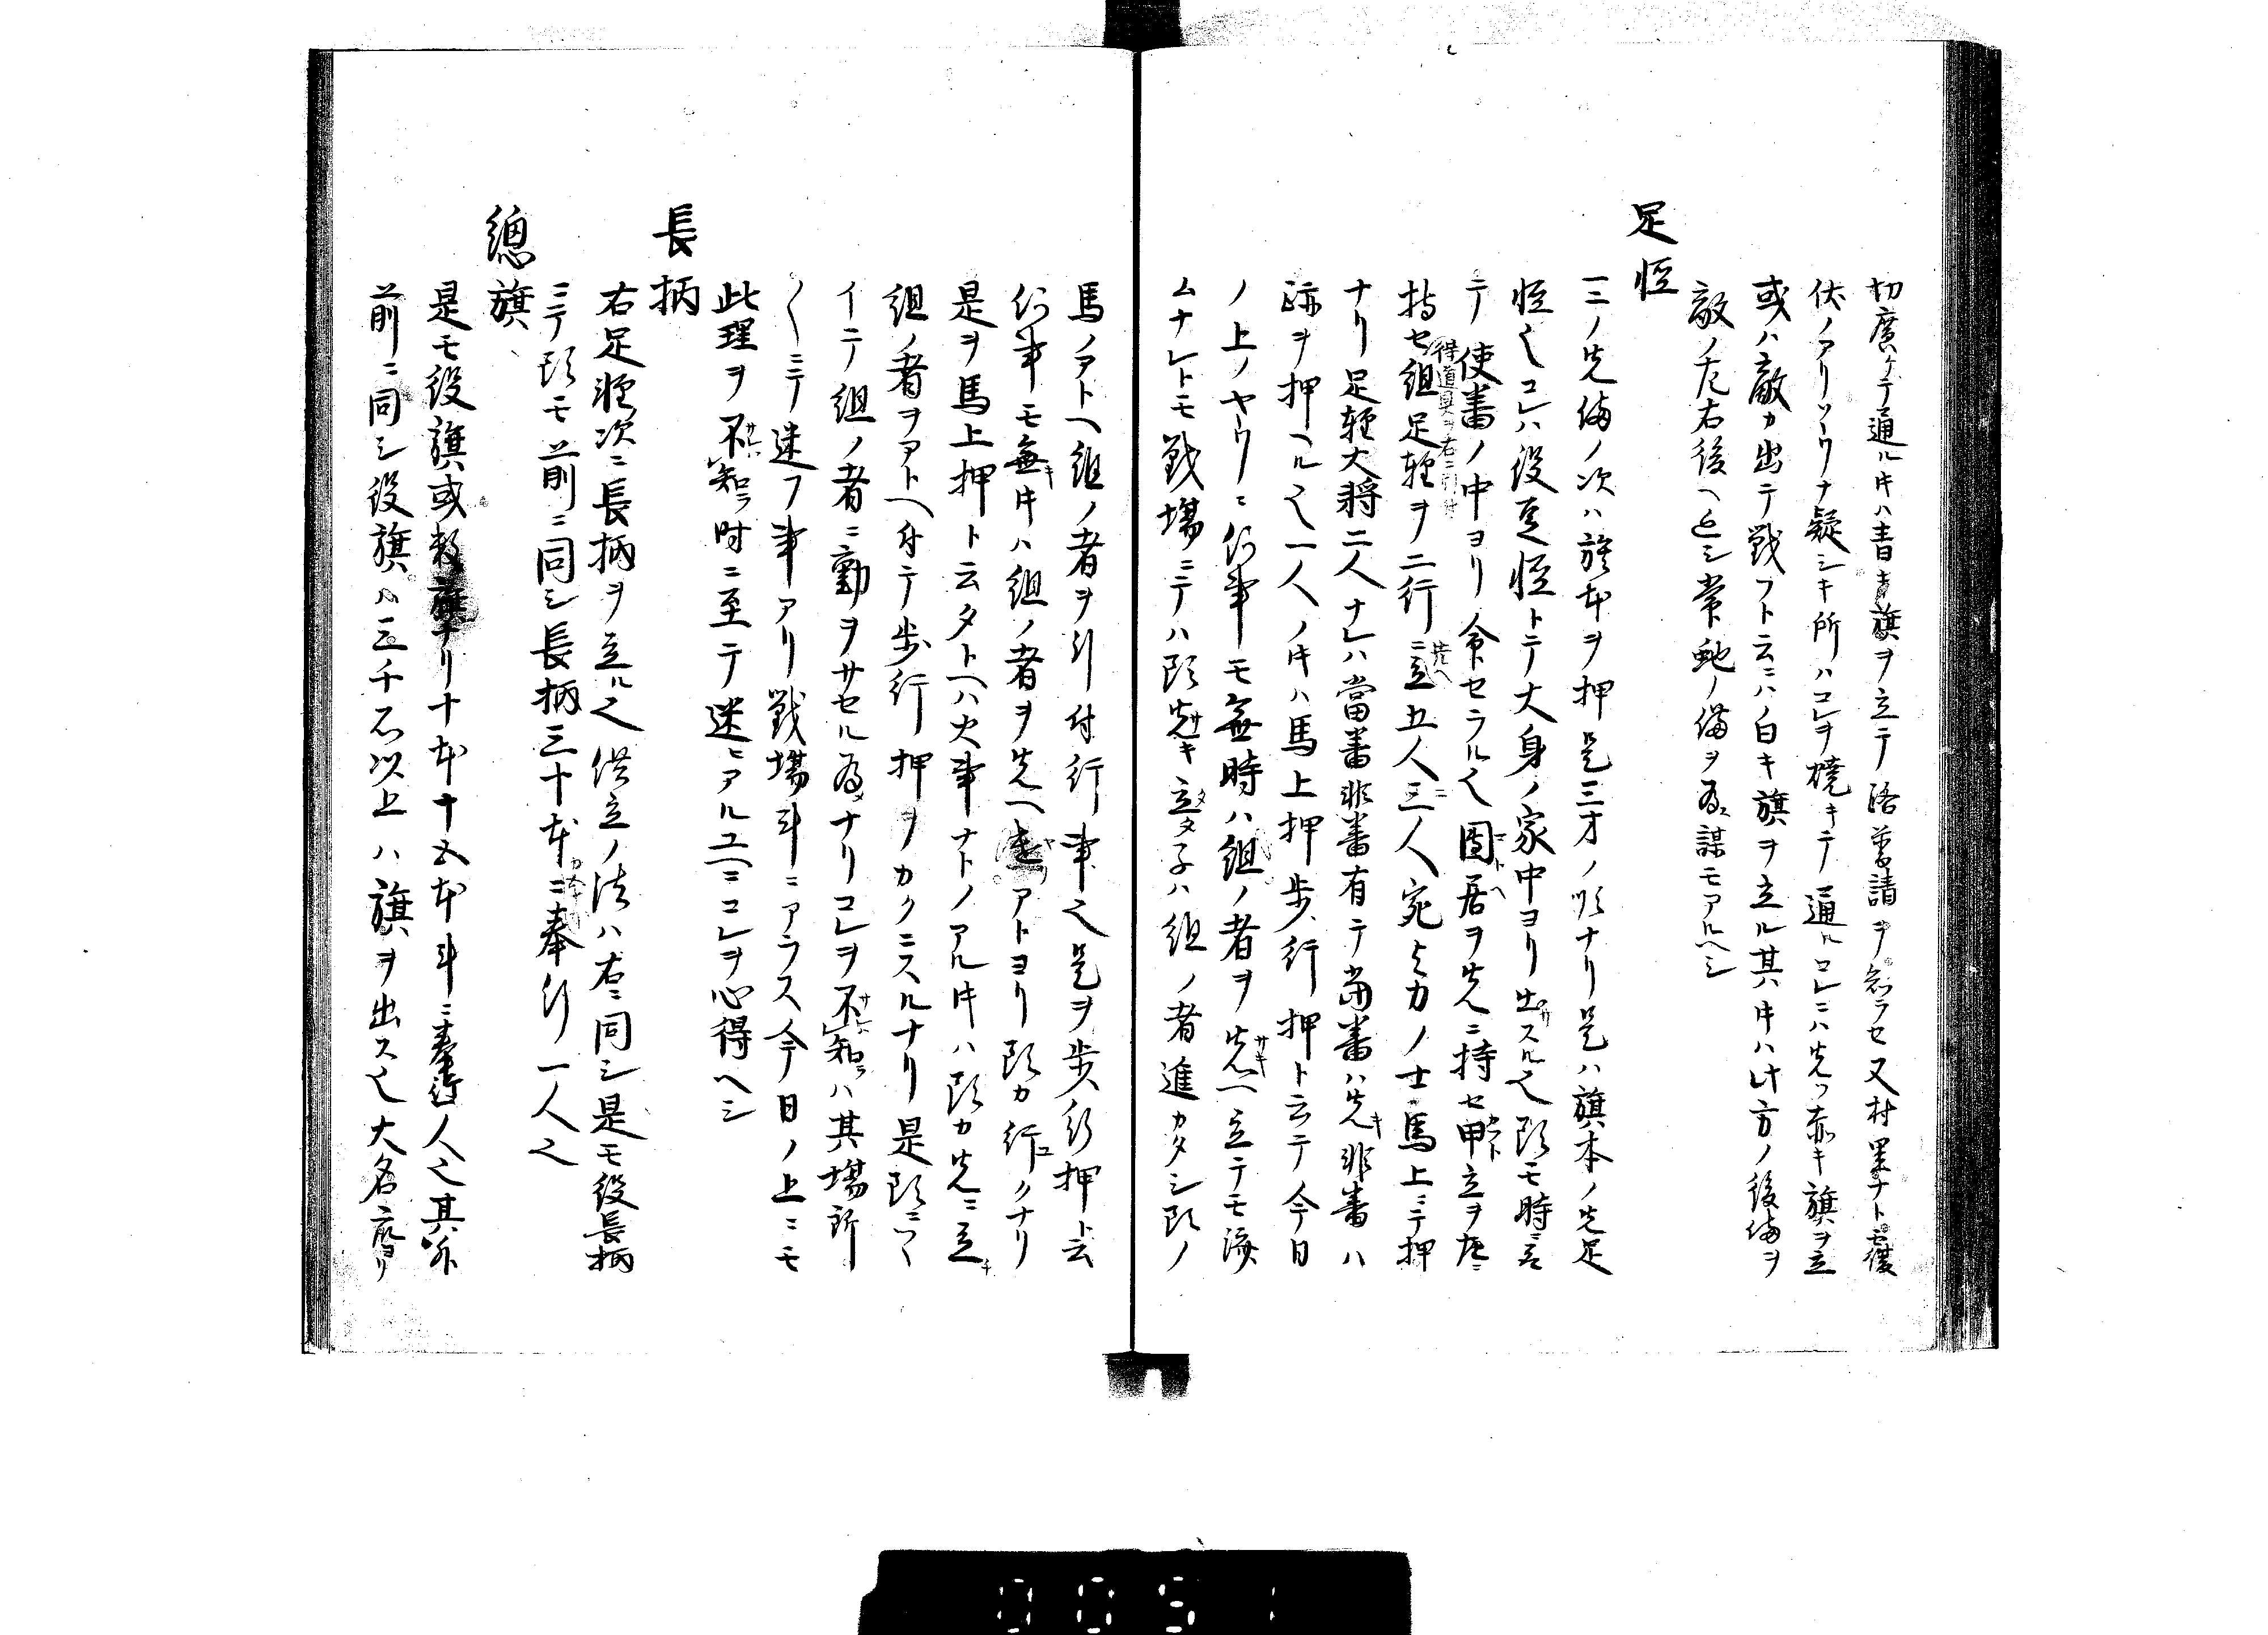 切廣ケテ通ル牛ハ青キ旗ヲ立テ路普請ヲ知ラセ又村里ナトニ復
伏ノアリソウナ疑シキ所ハコレヲ焼キテ通ルコレニハ先ツ赤キ旗ヲ立
或ハ敵カ出テ戦フト云ニハ白キ旗ヲ立ル其牛ハ此方ノ後備ヲ
敵ノ左右後ヘ廻シ常蛇ノ備ヲ為謀モアルヘシ
足軽
一二ノ先備ノ次ハ旗本ヲ押是三才ノ順ナリ是ハ旗本ノ先足
軽也コレハ役足軽トテ大身ノ家中ヨリ出スル也頭モ時ニ
テ使番ノ中ヨリ命セラル也圍居ヲ先ニ持セ甲立ヲ左ニ
得道具ヲ右ニ
持セ組足軽ヲ二行ニ立五人三人宛与力ノ士馬上ニテ押
ナリ足軽大将二人ナレハ當番非番有テ當番ハ先キ非番ハ
跡ヲ押ヘル也一人ノ牛ハ馬上押歩行押ト云テ今日
ノ上ノヤウニ何事モ無時ハ組ノ者ヲ先ヘ立テモ済
ムナレトモ戦場ニテハ頭先キ立タ子ハ組ノ者進カタシ頭ノ
馬ノアトヘ組ノ者ヲ引付行事也是ヲ歩行押ト云
何事モ無キ牛ハ組ノ者ヲ先ヘ遣アトヨリ頭カ行クナリ
是ヲ馬上押ト云タトヘハ火事ナトノアル牛ハ頭カ先ニ立
組ノ者ヲアトヘ付テ歩行押ヲカクニスルナリ是頭ニツ
イテ組ノ者ニ勤ヲサセル為ナリコレヲ不知ハ其場所
〱ニテ迷フ事アリ戦場斗ニアラス今日ノ上ニモ
此理ヲ不知時ニ至テ迷ヒアルユヘニコレヲ心得ヘシ
長柄
右足軽次ニ長柄ヲ立ル也供立ノ法ハ右ニ同シ是モ役長柄
ニテ頭モ前ニ同シ長柄三十本ニ奉行一人也
總旗
是モ役旗或数旗ナリ十本十五本斗ニ奉行人也其外
前ニ同シ役旗ハ三千石以上ハ旗ヲ出ス也大名ヨリ